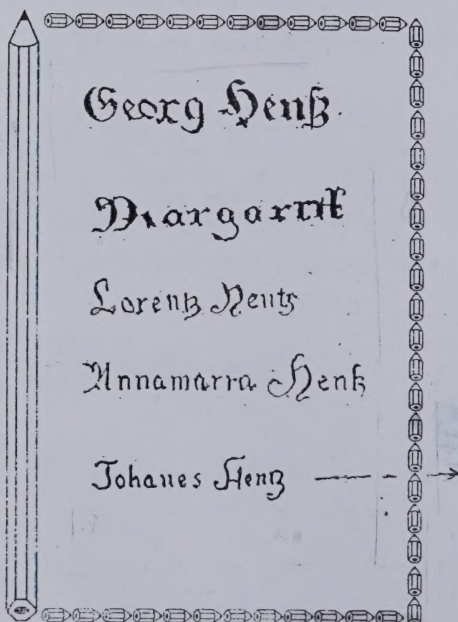 Georg Henß
Margarit
Lorentz Hentz
Annamarra Henß
Johanes Hentz